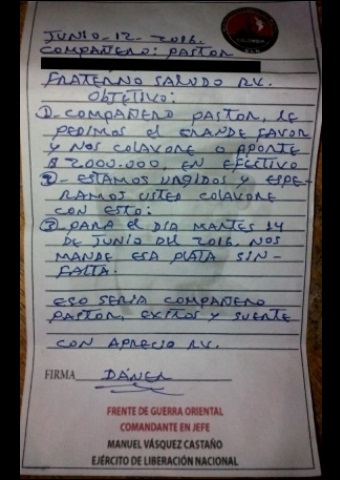 JUNIO-12-2016.
COMPAÑERO: PASTOR
FRATERNO SALUDO RV.
OBJETIVO:
①-COMPAÑERO PASTOR, LE
PEDIMOS EL GRANDE FAVOR
Y NOS COLAVORE O APORTE
$2000.000, EN EFETIVO
②-ESTAMOS URGIDOS Y ESPE-
RAMOS USTED COLAVORE
CON ESTO:
③-PARA EL DIA MARTES 14
DE JUNIO DEL 2016. NOS
MANDE ESA PLATA SIN-
FALTA.
ESO SERIA COMPAÑERO
PASTOR, EXITOS Y SUERTE
CON APRECIO RV.
FIRMA DANER
FRENTE DE GUERRA ORIENTAL
COMANDANTE EN JEFE
MANUEL VÁSQUEZ CASTAÑO
EJÉRCITO DE LIBERACIÓN NACIONAL